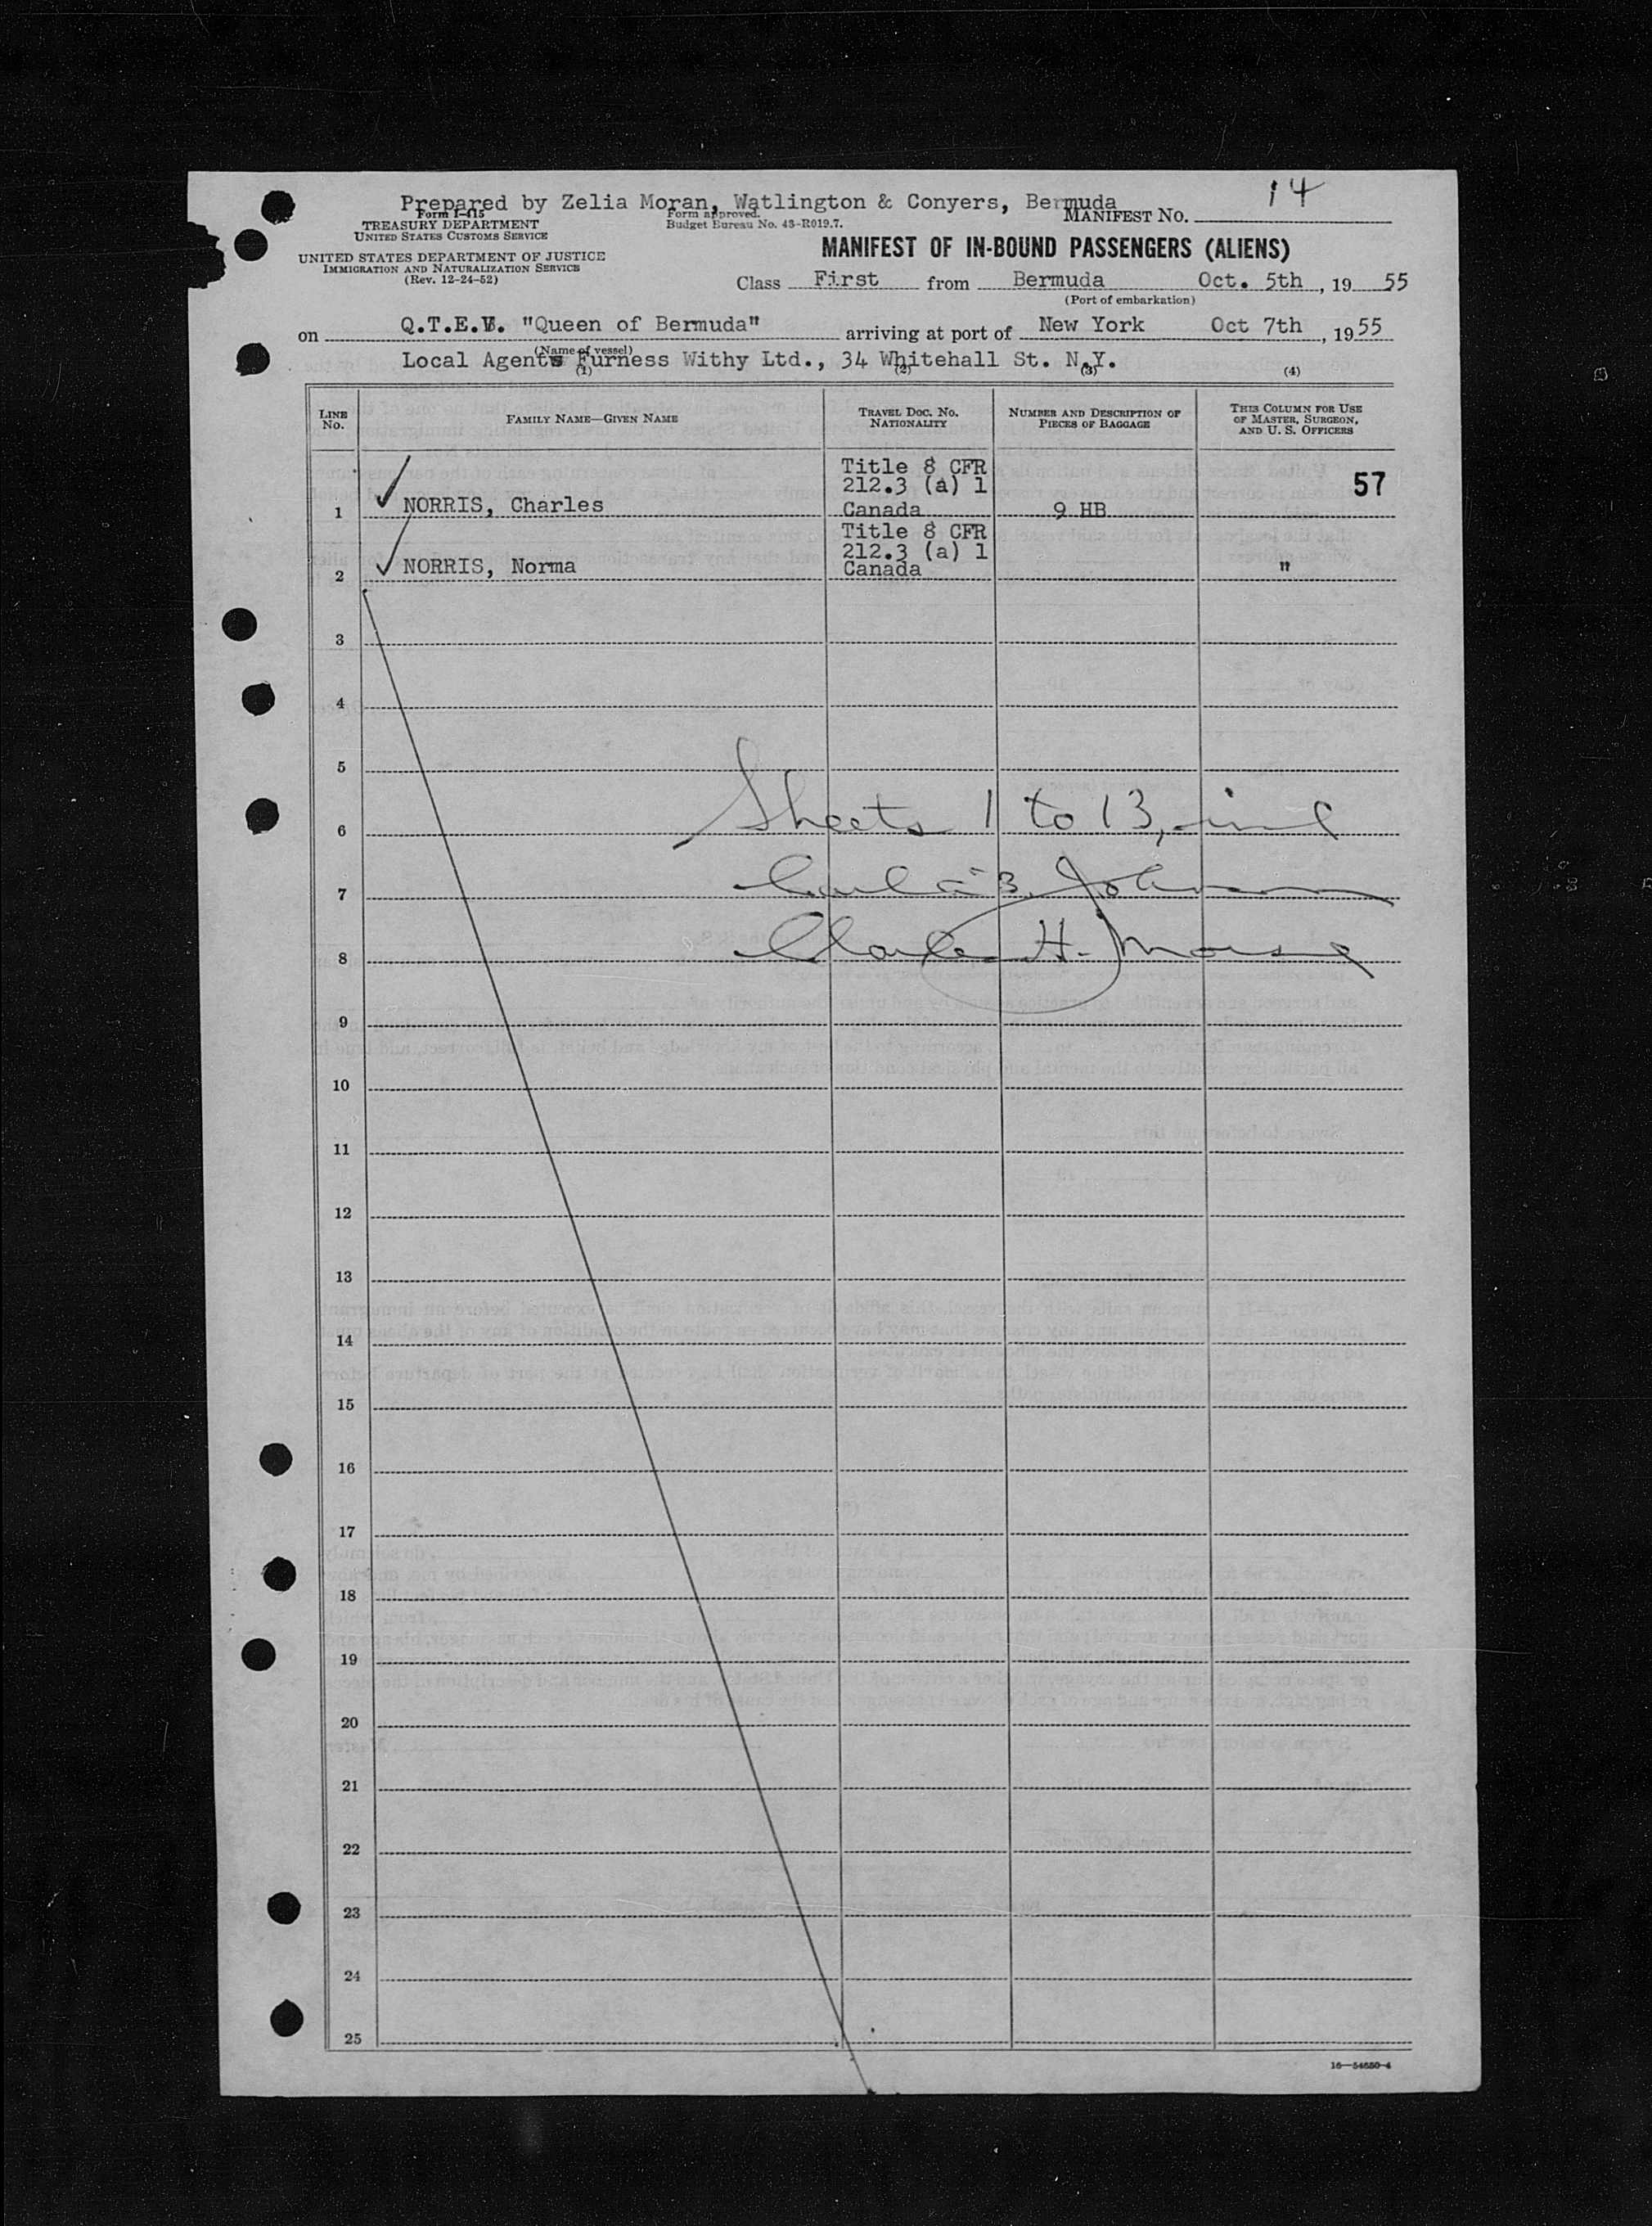 Prepared by Zelia Moran, Watlington & Conyers, Bermuda
14
Form I-415
TREASURY DEPARTMENT
UNITED STATES CUSTOMS SERVICE
Form approved.
Budget Bureau No. 43-R019.7.
MANIFEST NO.
UNITED STATES DEPARTMENT OF JUSTICE
IMMIGRATION AND NATURALIZATION SERVICE
(Rev. 12-24-52)
MANIFEST OF IN-BOUND PASSENGERS (ALIENS)
Class First from Bermuda Oct. 5th, 1955
(Port of embarkation)
on Q.T.E.V. "Queen of Bermuda" arriving at port of New York Oct 7th, 1955
(Name of vessel)
Local Agents Furness Withy Ltd., 34 Whitehall St. N.Y.
(1) (2) (3) (4)
LINE NO. FAMILY NAME—GIVEN NAME TRAVEL DOC. NO. NATIONALITY NUMBER AND DESCRIPTION OF PIECES OF BAGGAGE THIS COLUMN FOR USE OF MASTER, SURGEON, AND U. S. OFFICERS
Title 8 CFR
212.3 (a) 1 57
1 NORRIS, Charles Canada 9 HB
Title 8 CFR
212.3 (a) 1
2 NORRIS, Norma Canada "
3
4
5
6 Sheets 1 to 13, incl
7 B. Johnson
8 Charles H. Morse
9
10
11
12
13
14
15
16
17
18
19
20
21
22
23
24
25
16—54650-4